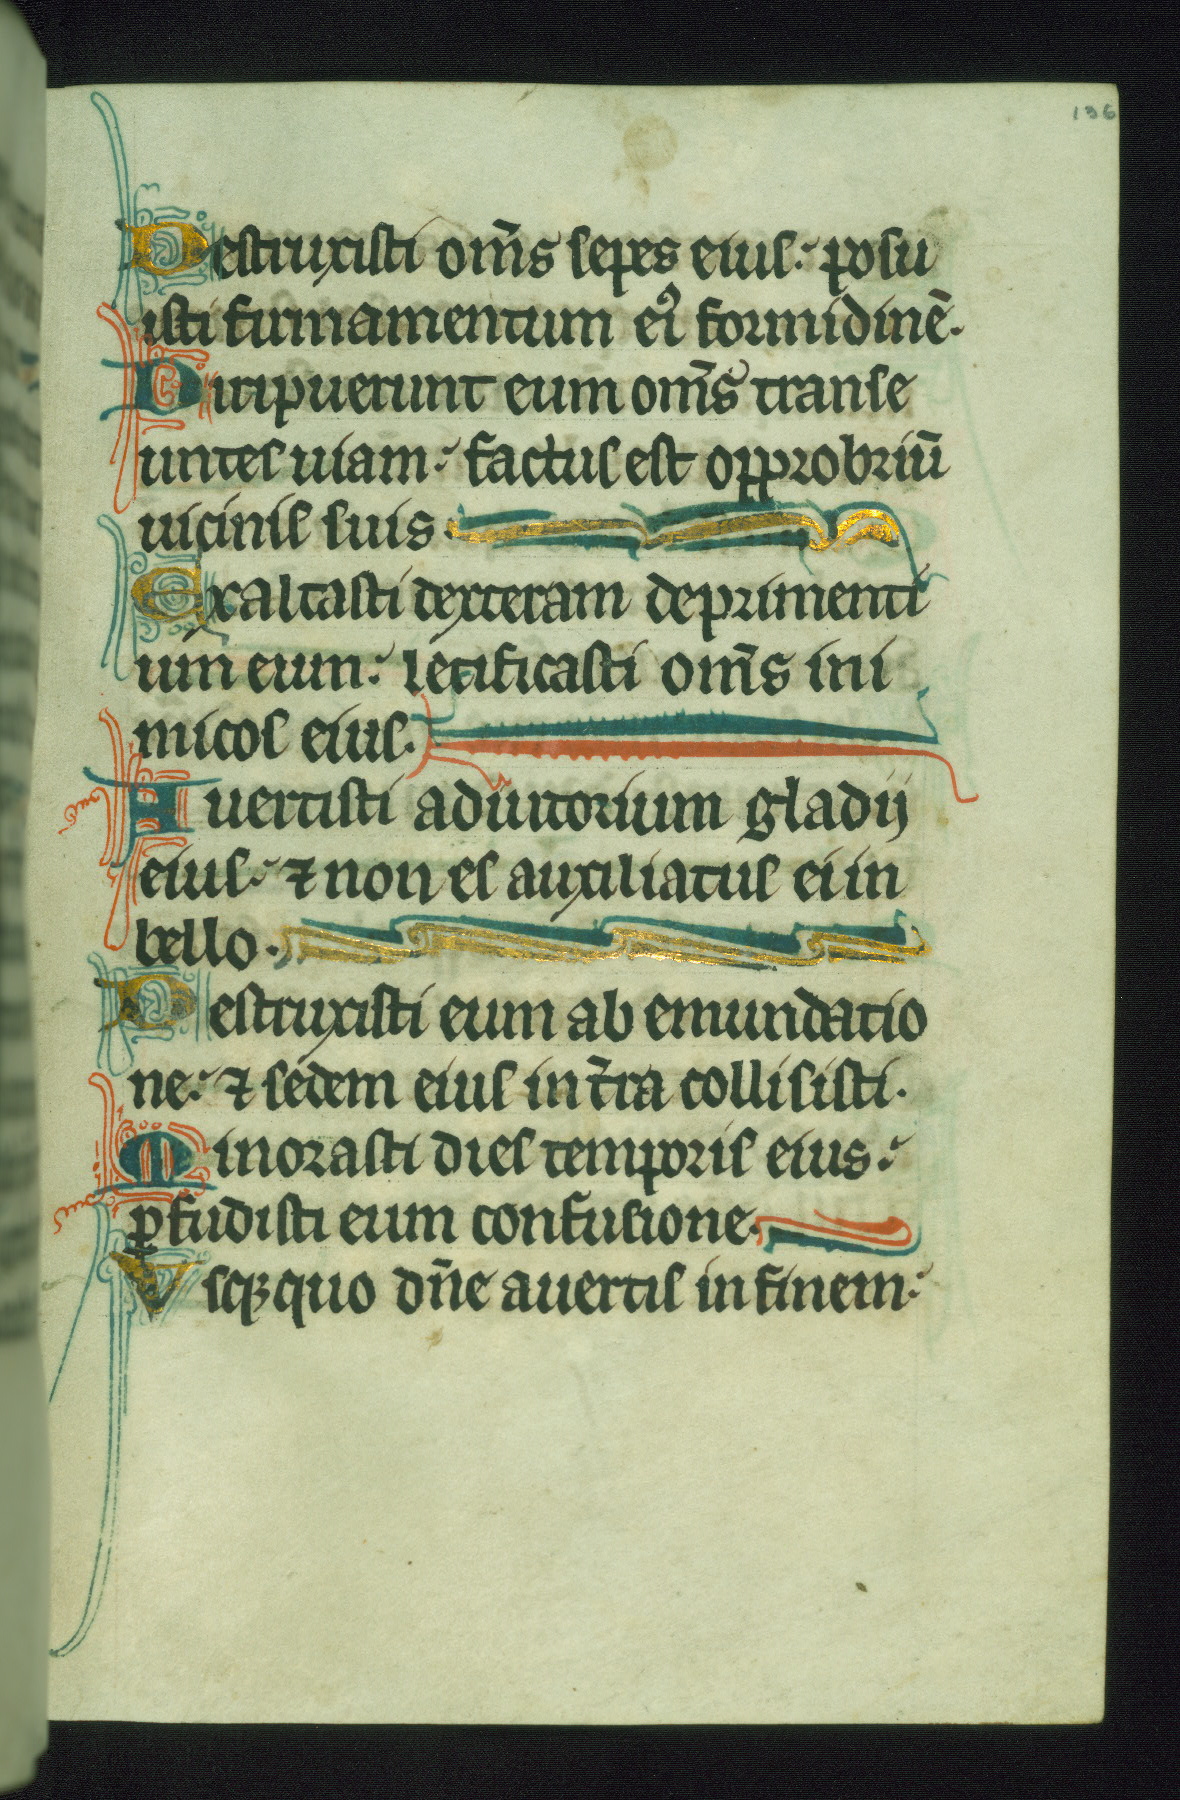 136
Destruxisti om̄s sepes eius: posu
isti firmamentum ei᾿ formidinē.
Diripuerunt eum om̄s transe
untes uiam: factus est opprobriū
uicinis suis.
Exaltasti dexteram deprimenti
um eum: letificasti om̄s ini
micos eius.
Auertisti adiutorium gladij
eius: ⁊ non es auxiliatus ei in
bello.
Destruxisti eum ab emundatio
ne: ⁊ sedem eius in t̄ra collisisti.
Minorasti dies temporis eius:
ꝑfudisti eum confusione.
Vsqꝫquo dn̄e auertis in finem: